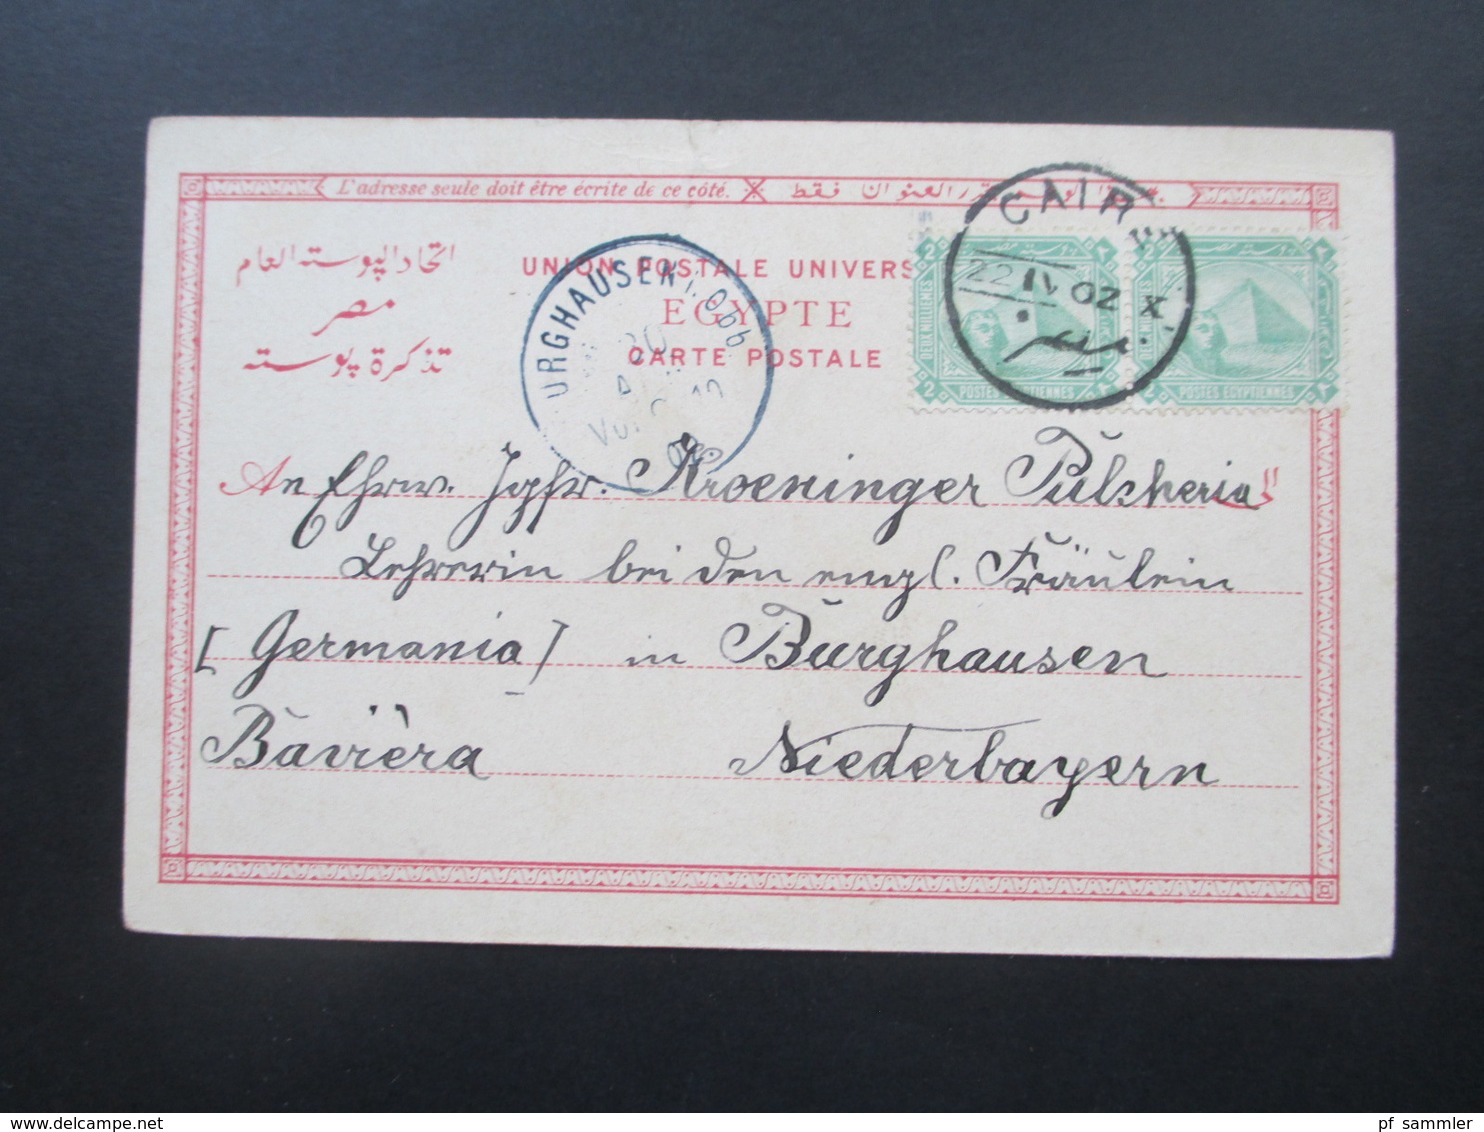 L'adresse seule doit être écrite de ce côté.
اتحاد البوسته العام
مصر
تذكرة بوسته
UNION POSTALE UNIVERS
EGYPTE
CARTE POSTALE
URGHAUSEN a. Obb.
CAIR
22 IV 02 X
مصر
2 2
DEUX MILLIEMES
POSTES EGYPTIENNES
2 2
DEUX MILLIEMES
POSTES EGYPTIENNES
An Ehrw. Jgfr. Kroeninger Pulcheria
Lehrerin bei den engl. Fräulein
[Germania] in Burghausen
Bavièra Niederbayern
www.delcampe.net
pf_sammler